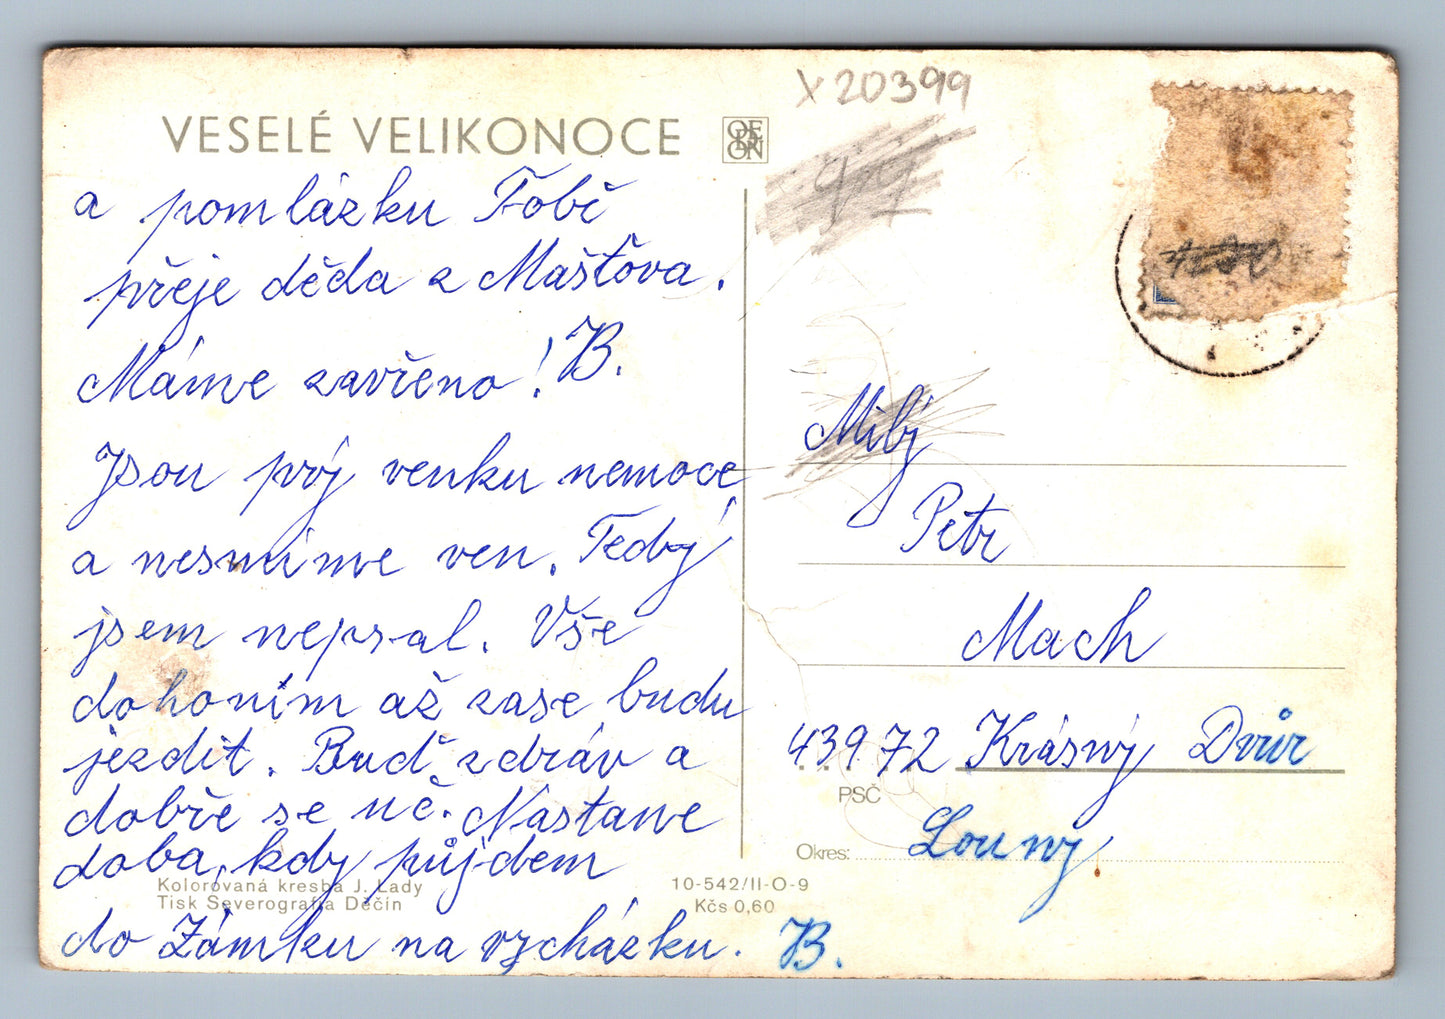 X 20399
VESELÉ VELIKONOCE
ODEON
a pomlázku Tobě
přeje děda z Mašťova.
Máme zavřeno! B.
Jsou prý venku nemoce
a nesmíme ven. Tedy
jsem nepsal. Vše
dohoním až zase budu
jezdit. Buď zdráv a
dobře se uč. Nastane
doba, kdy půjdem
do Zámku na vycházku. B.
Kolorovaná kresba J. Lady
Tisk Severografia Děčín
10-542/II-O-9
Kčs 0,60
Milý
Petr
Mach
43972 Krásný Dvůr
PSČ
Okres: Louny